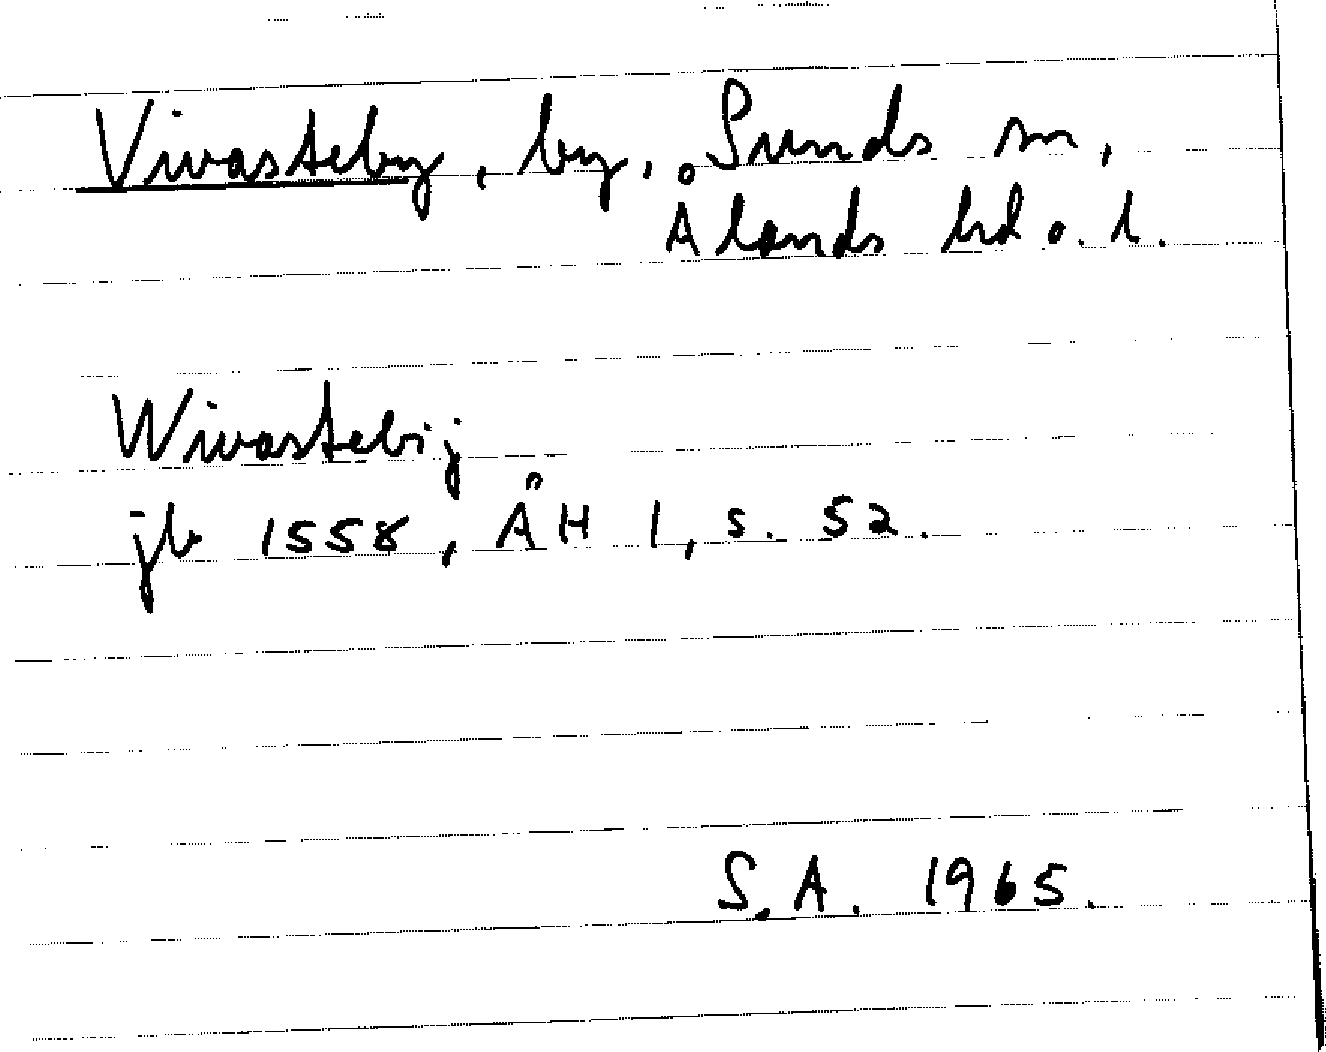 Vivasteby, by, Sunds sn,
Ålands hd o. l.
Wivastebij
jb 1558, ÅH 1, s. 52.
S.A. 1965.